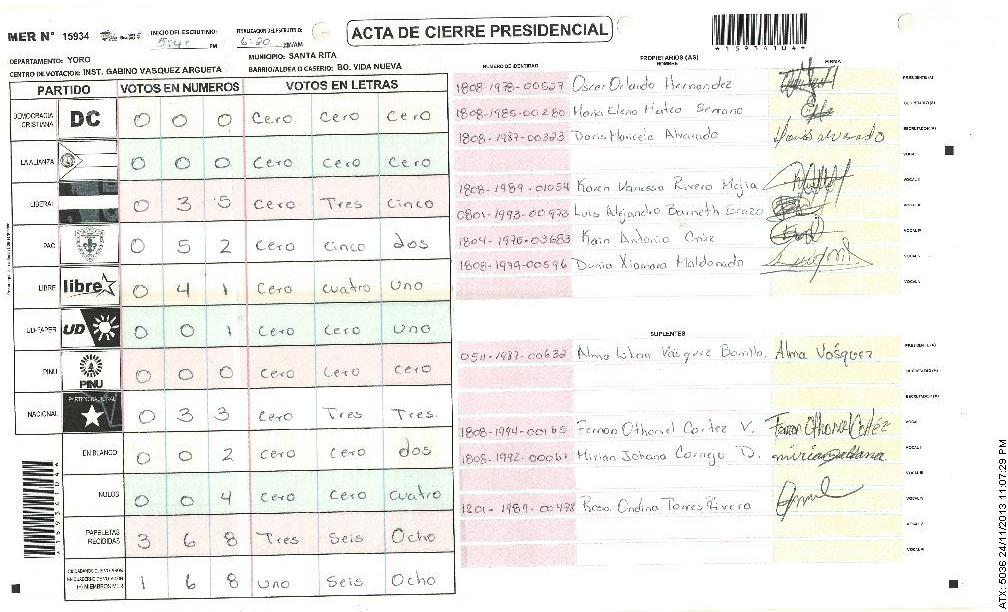 MER N° 15934
INICIO DEL ESCRUTINIO: PM
FINALIZACION DEL ESCRUTINIO: 6:20 PM/AM
ACTA DE CIERRE PRESIDENCIAL
DEPARTAMENTO: YORO
MUNICIPIO: SANTA RITA
CENTRO DE VOTACION: INST. GABINO VASQUEZ ARGUETA
BARRIO/ALDEA O CASERIO: BO. VIDA NUEVA
PARTIDO VOTOS EN NUMEROS VOTOS EN LETRAS
DEMOCRACIA CRISTIANA DC 0 0 0 Cero Cero Cero
LA ALIANZA 0 0 0 Cero Cero Cero
LIBERAL 0 3 5 Cero Tres Cinco
PAC 0 5 2 Cero Cinco dos
LIBRE libre 0 4 1 Cero Cuatro Uno
UD-FAPER UD 0 0 1 Cero Cero Uno
PINU PINU 0 0 0 Cero Cero Cero
NACIONAL PARTIDO NACIONAL 0 3 3 Cero Tres Tres.
EN BLANCO 0 0 2 Cero Cero dos
NULOS 0 0 4 Cero Cero Cuatro
PAPELETAS RECIBIDAS 3 6 8 Tres Seis Ocho
1 6 8 Uno Seis Ocho
NUMERO DE IDENTIDAD
PROPIETARIOS (AS)
NOMBRE
FIRMA
1808-1978-00529 Oscar Orlando Hernandez PRESIDENTE(A)
1808-1985-00280 Maria Elena Matco Serrano SECRETARIO(A)
1808-1987-00323 Doris Maricela Alvarado Doris alvarado ESCRUTADOR(A)
VOCAL I
1808-1989-01054 Karen Vanessa Rivera Mejia VOCAL II
0801-1993-00973 Luis Alejandro Barneth Erazo VOCAL III
1804-1975-03683 Kain Antonio Cruz VOCAL IV
1808-1979-00596 Dunia Xiomara Maldonado VOCAL V
SUPLENTES
0511-1987-00632 Alma Lilian Vásquez Bonilla. Alma Vásquez PRESIDENTE(A)
SECRETARIO(A)
ESCRUTADOR(A)
1808-1994-00165 Fernan Othoniel Cortez V. Fernan Othoniel Cortéz VOCAL I
1808-1992-00061 Mirian Johana Cornejo D. VOCAL II
VOCAL III
1801-1989-00498 Rosa Ondina Torres Rivera VOCAL IV
VOCAL V
ATX: 5036 24/11/2013 11:07:29 PM